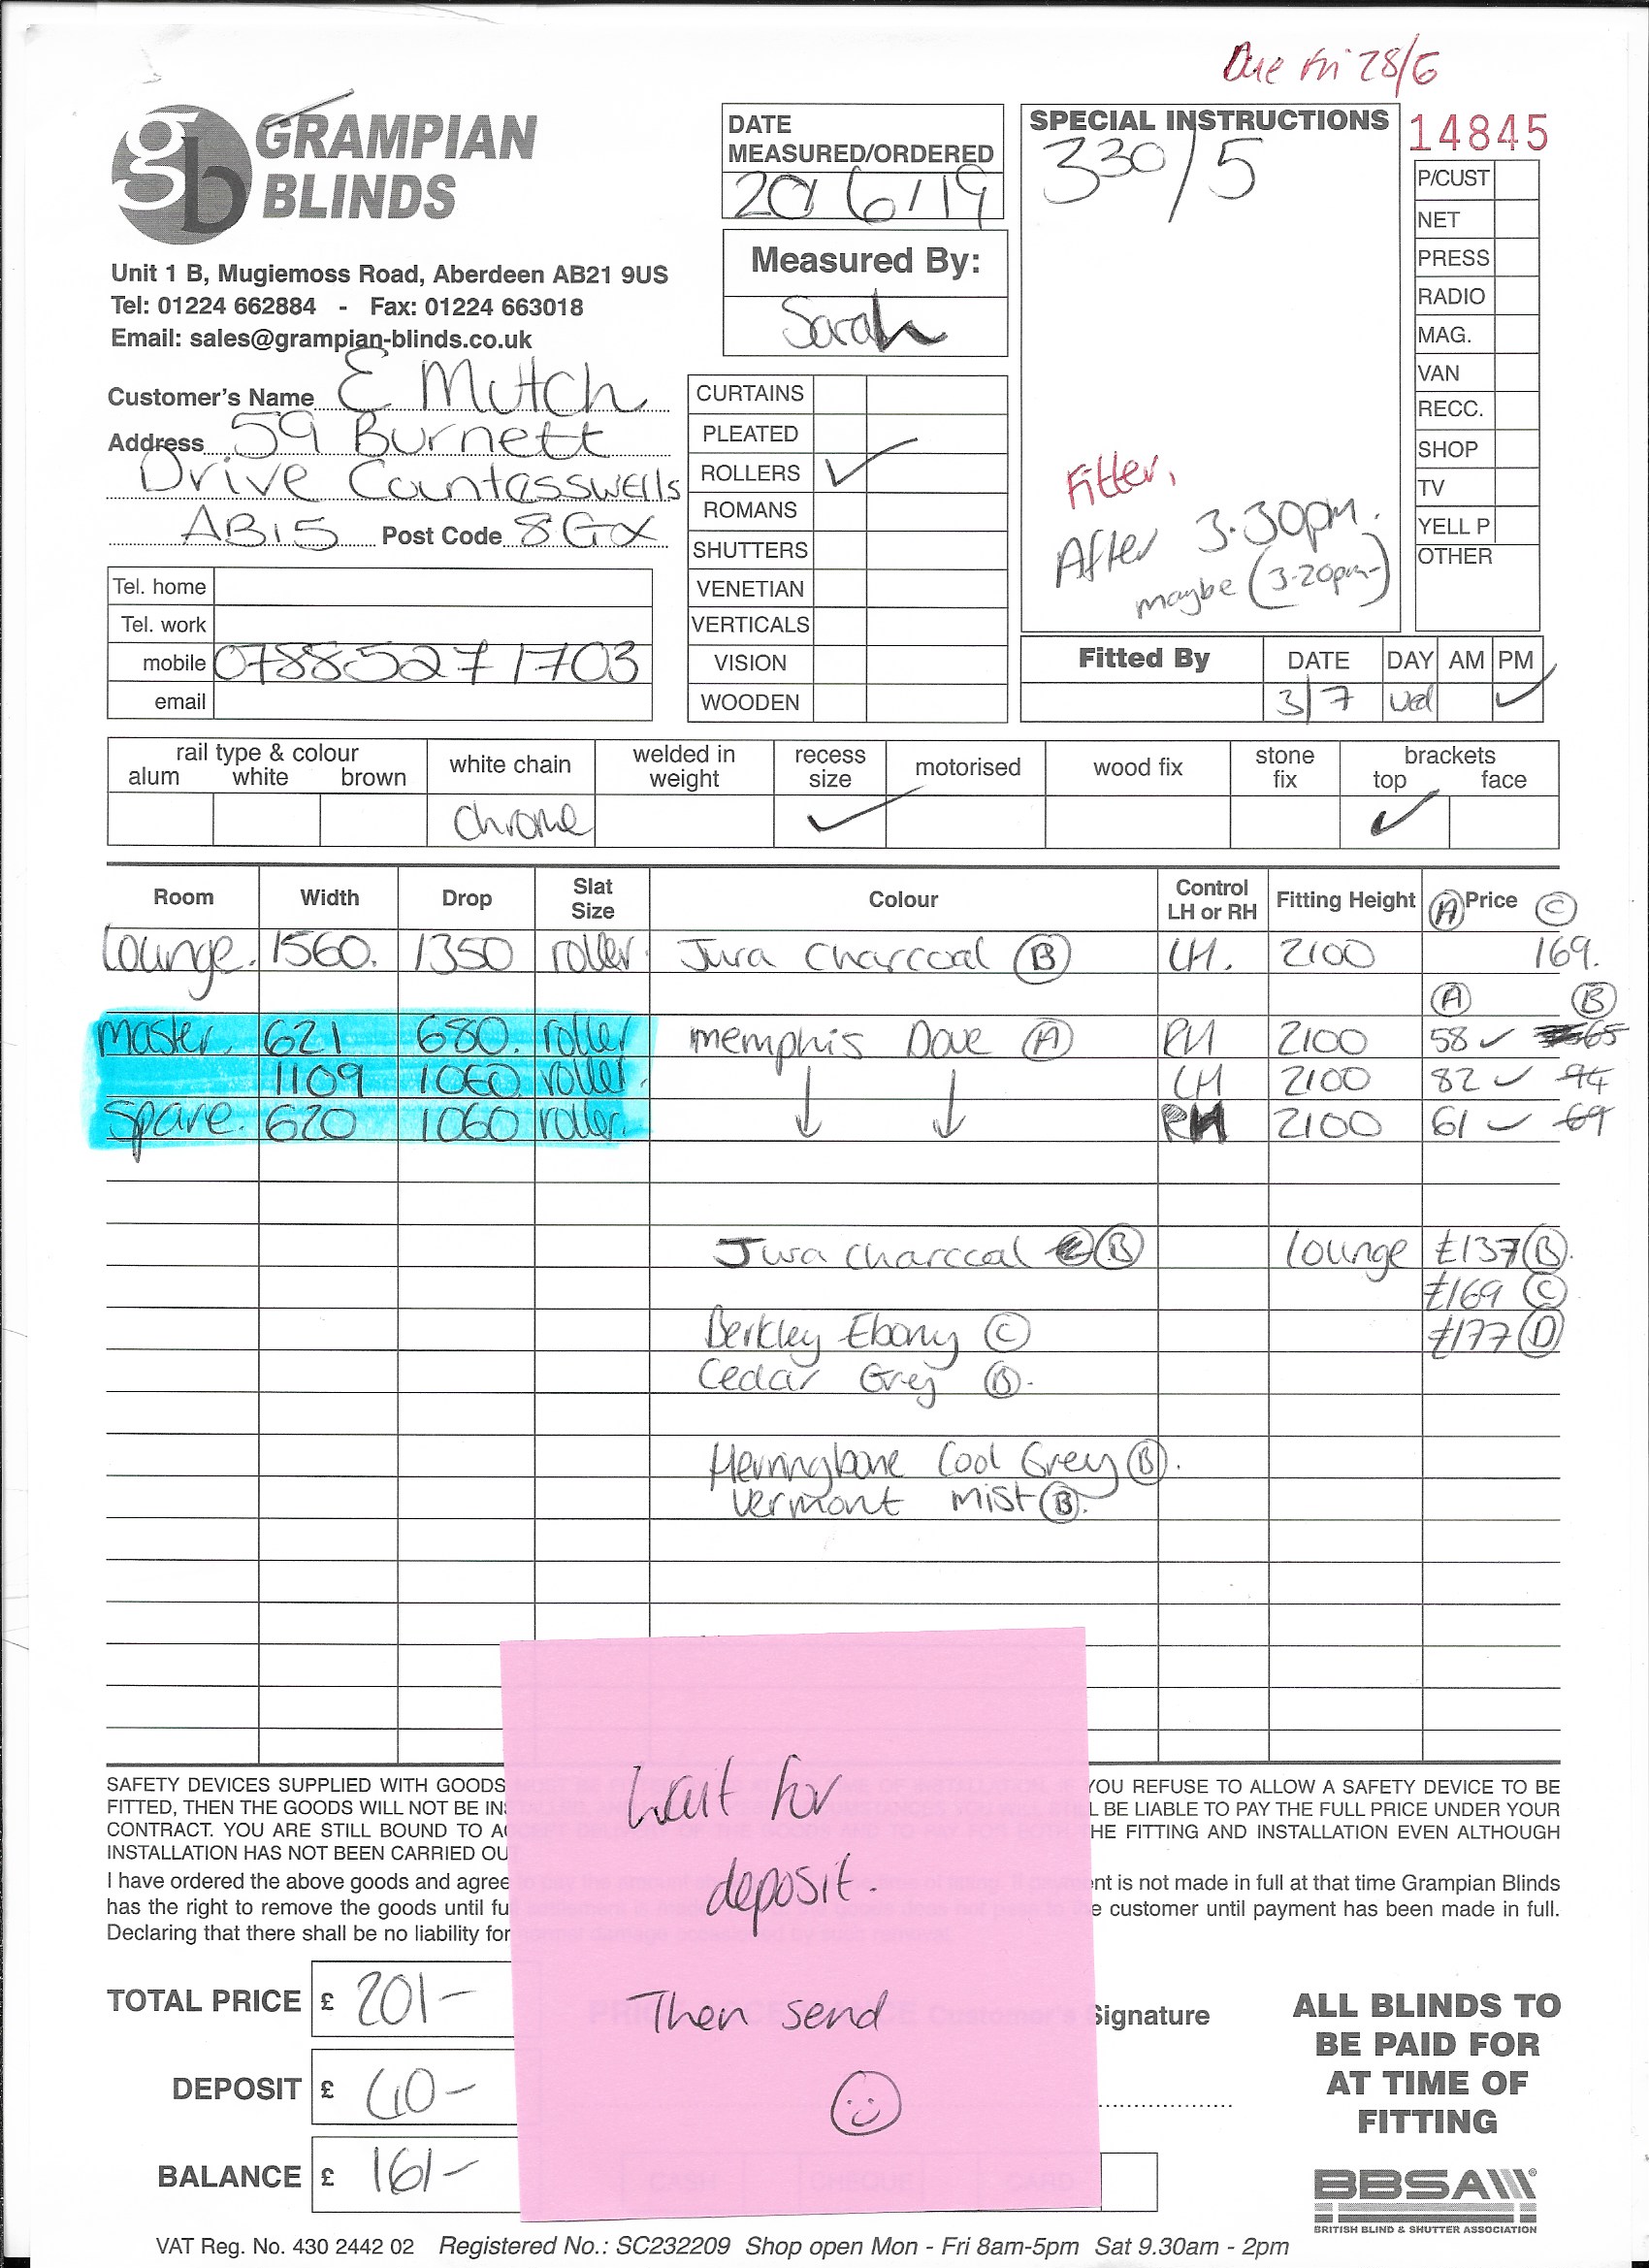 Due Fri 28/6
GRAMPIAN
BLINDS
gb
Unit 1 B, Mugiemoss Road, Aberdeen AB21 9US
Tel: 01224 662884 - Fax: 01224 663018
Email: sales@grampian-blinds.co.uk
DATE
MEASURED/ORDERED
20/6/19
Measured By:
Sarah
SPECIAL INSTRUCTIONS
330/5
Fitter,
After 3.30pm.
maybe (3-20pm-)
14845
P/CUST
NET
PRESS
RADIO
MAG.
VAN
RECC.
SHOP
TV
YELL P
OTHER
Customer's Name E Mutch
Address 59 Burnett
Drive Countasswells
AB15 Post Code 8GX
Tel. home
Tel. work
mobile 07885271703
email
CURTAINS
PLEATED
ROLLERS ✓
ROMANS
SHUTTERS
VENETIAN
VERTICALS
VISION
WOODEN
Fitted By DATE DAY AM PM
3/7 Wed ✓
rail type & colour
alum white brown
white chain
welded in
weight
recess
size
motorised
wood fix
stone
fix
brackets
top face
Chrome ✓ ✓
Room Width Drop Slat Size Colour Control LH or RH Fitting Height (A) Price (C)
Lounge. 1560. 1350 roller. Jura Charcoal (B) LH. 2100 169.
(A) (B)
Master. 621 680. roller memphis Dove (A) RH 2100 58 ✓ 65
1109 1060 roller. ↓ ↓ LH 2100 82 ✓ 94
Spare. 620 1060 roller. RH 2100 61 ✓ 69
Jura Charccal (B) Lounge £137 (B).
£169 (C)
Berkley Ebony (C) £177 (D)
Cedar Grey (B).
Herringbone Cool Grey (B).
Vermont mist (B).
Wait for
deposit.
Then send
SAFETY DEVICES SUPPLIED WITH GOODS YOU REFUSE TO ALLOW A SAFETY DEVICE TO BE
FITTED, THEN THE GOODS WILL NOT BE INS L BE LIABLE TO PAY THE FULL PRICE UNDER YOUR
CONTRACT. YOU ARE STILL BOUND TO A HE FITTING AND INSTALLATION EVEN ALTHOUGH
INSTALLATION HAS NOT BEEN CARRIED OU
I have ordered the above goods and agree nt is not made in full at that time Grampian Blinds
has the right to remove the goods until fu e customer until payment has been made in full.
Declaring that there shall be no liability for
TOTAL PRICE £ 201-
DEPOSIT £ 40-
BALANCE £ 161-
Customer's Signature
CASH CHEQUE CARD
ALL BLINDS TO
BE PAID FOR
AT TIME OF
FITTING
BBSA
BRITISH BLIND & SHUTTER ASSOCIATION
VAT Reg. No. 430 2442 02 Registered No.: SC232209 Shop open Mon - Fri 8am-5pm Sat 9.30am - 2pm